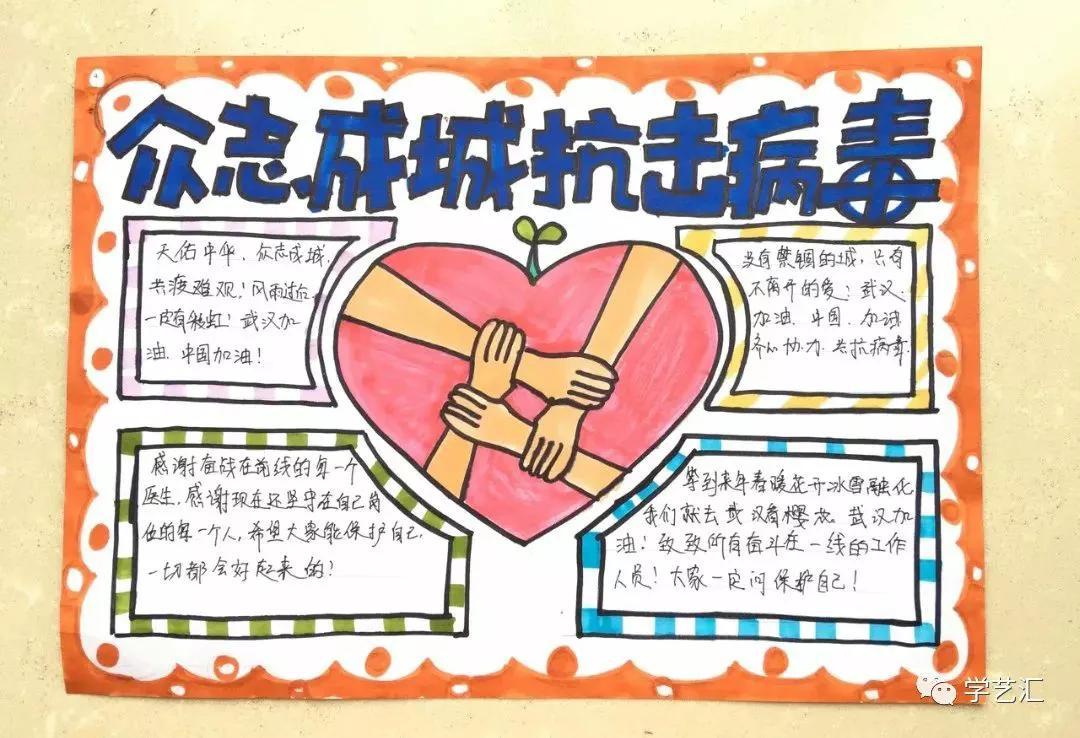 众志成城抗击病毒
天佑中华、众志成城、
共渡难观！风雨过后,
一定有彩虹！武汉加
油、中国加油！
没有禁锢的城，只有
不离开的爱！武汉、
加油、中国、加油
齐心协力、共抗病毒
感谢奋战在前线的每一个
医生，感谢现在还坚守在自己岗
位的每一个人，希望大家能保护自己，
一切都会好起来的！
等到来年春暖花开冰雪融化
我们就去武汉看樱花。武汉加
油！致致所有奋斗在一线的工作
人员！大家一定问保护自己！
学艺汇